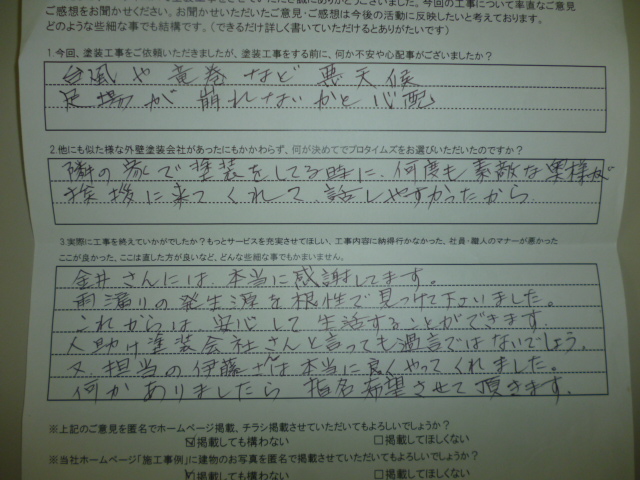 ご感想をお聞かせください。お聞かせいただいたご意見・ご感想は今後の活動に反映したいと考えております。
どのような些細な事でも結構です。(できるだけ詳しく書いていただけるとありがたいです)
1.今回、塗装工事をご依頼いただきましたが、塗装工事をする前に、何か不安や心配事がございましたか?
台風や竜巻など悪天候
足場が崩れないかと心配
2.他にも似た様な外壁塗装会社があったにもかかわらず、何が決めてでプロタイムズをお選びいただいたのですか?
隣の家で塗装をしてる時に、何度も素敵な奥様が
挨拶に来てくれて、話しやすかったから。
3.実際に工事を終えていかがでしたか?もっとサービスを充実させてほしい、工事内容に納得行かなかった、社員・職人のマナーが悪かった
ここが良かった、ここは直した方が良いなど、どんな些細な事でもかまいません。
金井さんには、本当に感謝してます。
雨漏りの発生源を根性で見つけて下さいました。
これからは、安心して生活することができます。
人助け塗装会社さんと言っても過言ではないでしょう。
又、担当の伊藤さんは本当に良くやってくれました。
何かありましたら指名希望させて頂きます。
※上記のご意見を匿名でホームページ掲載、チラシ掲載させていただいてもよろしいでしょうか?
☑掲載しても構わない □掲載してほしくない
※当社ホームページ「施工事例」に建物のお写真を匿名で掲載させていただいてもよろしいでしょうか?
☑掲載しても構わない □掲載してほしくない